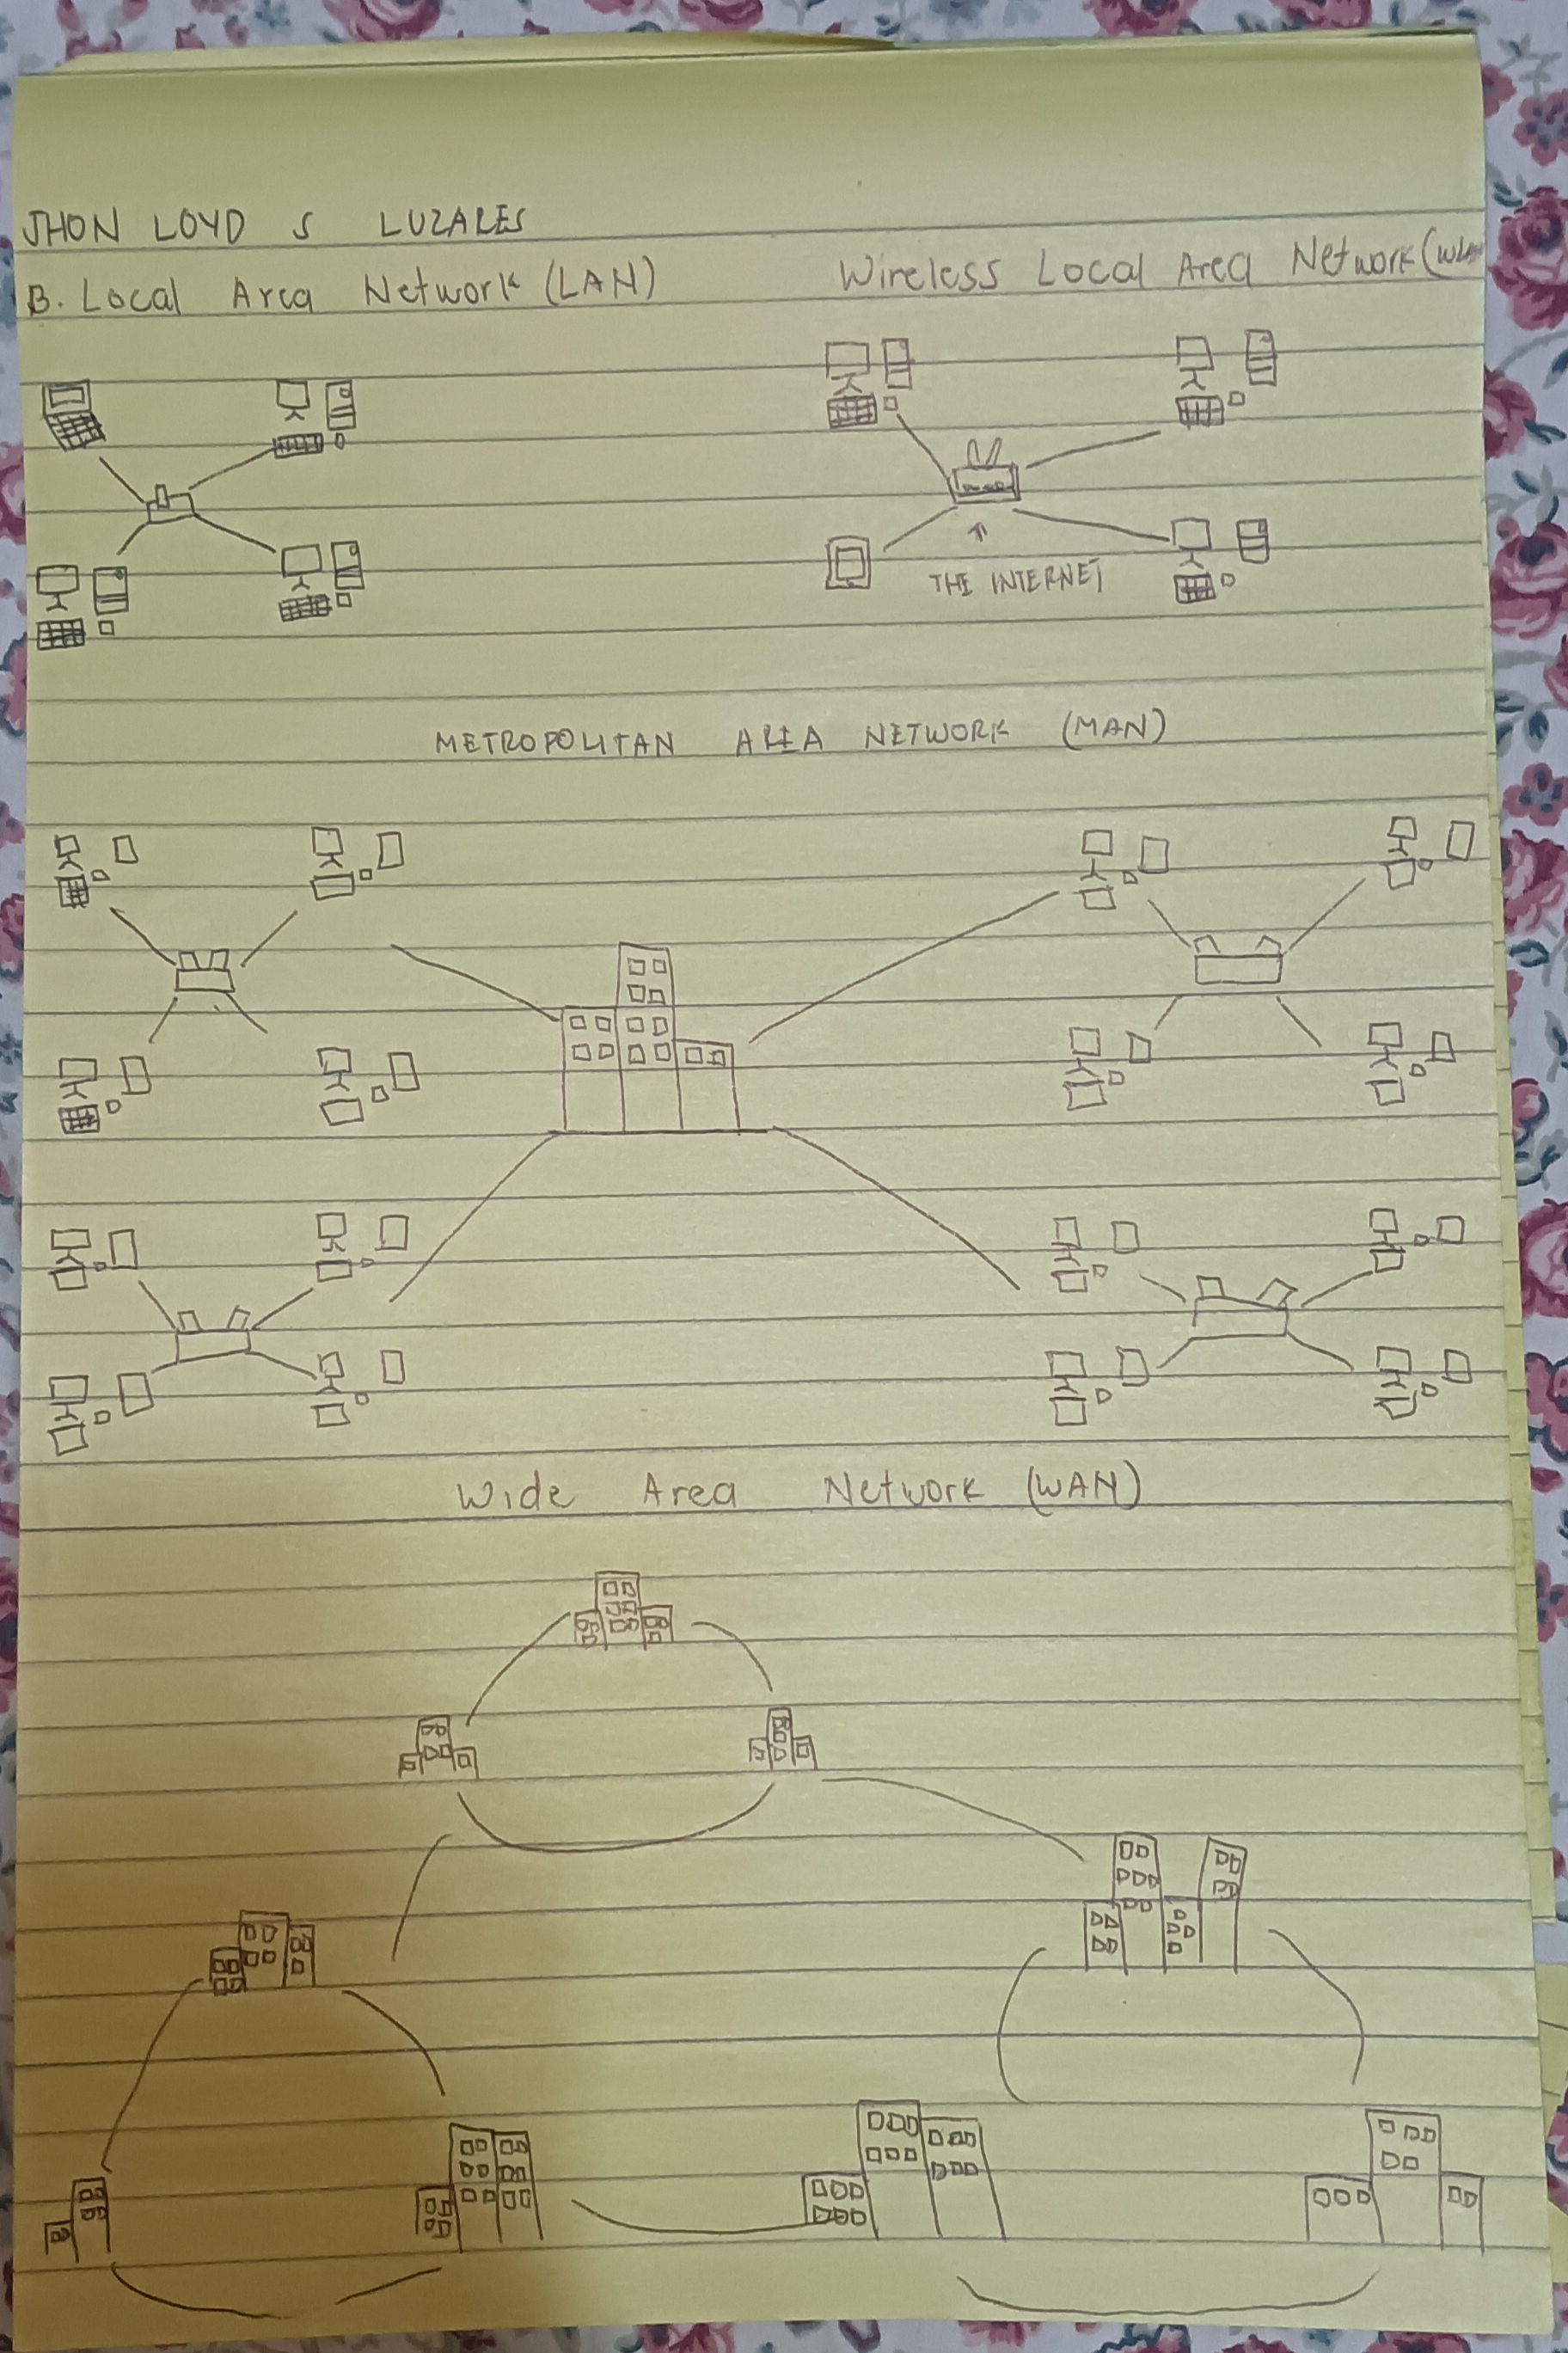 JHON LOYD S LUZARES
B. Local Area Network (LAN)
Wireless Local Area Network (WLAN
THE INTERNET
METROPOLITAN AREA NETWORK (MAN)
Wide Area Network (WAN)